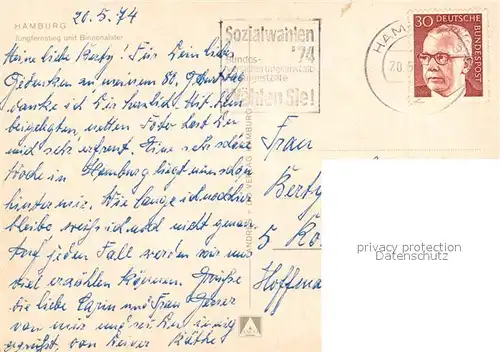 HAMBURG
Jungfernstieg und Binnenalster
20.5.74
Meine liebe Berty! Für Dein liebes
Gedenken zu meinem 80. Geburtstag
danke ich Dir herzlich. Mit dem
beigelegten, netten Foto hast Du
mich sehr erfreut. Eine sehr schöne
Woche in Hamburg liegt nun schon
hinter mir. Wie lange ich noch hier
bleibe weiß ich noch nicht genau.
Auf jeden Fall werden wir uns
viel erzählen können. Grüße
die liebe und Frau
von mir und sei Du innig
gegrüßt von Deiner Käthe
Sozialwahlen
'74
Bundes-
versicherungsanstalt
Angestellte
Wählen Sie!
HAM
20.5
30 DEUTSCHE
BUNDESPOST
ANDRES VERLAG HAMBURG
Frau
Berty
5 Kö
Hoffma
privacy protection
Datenschutz